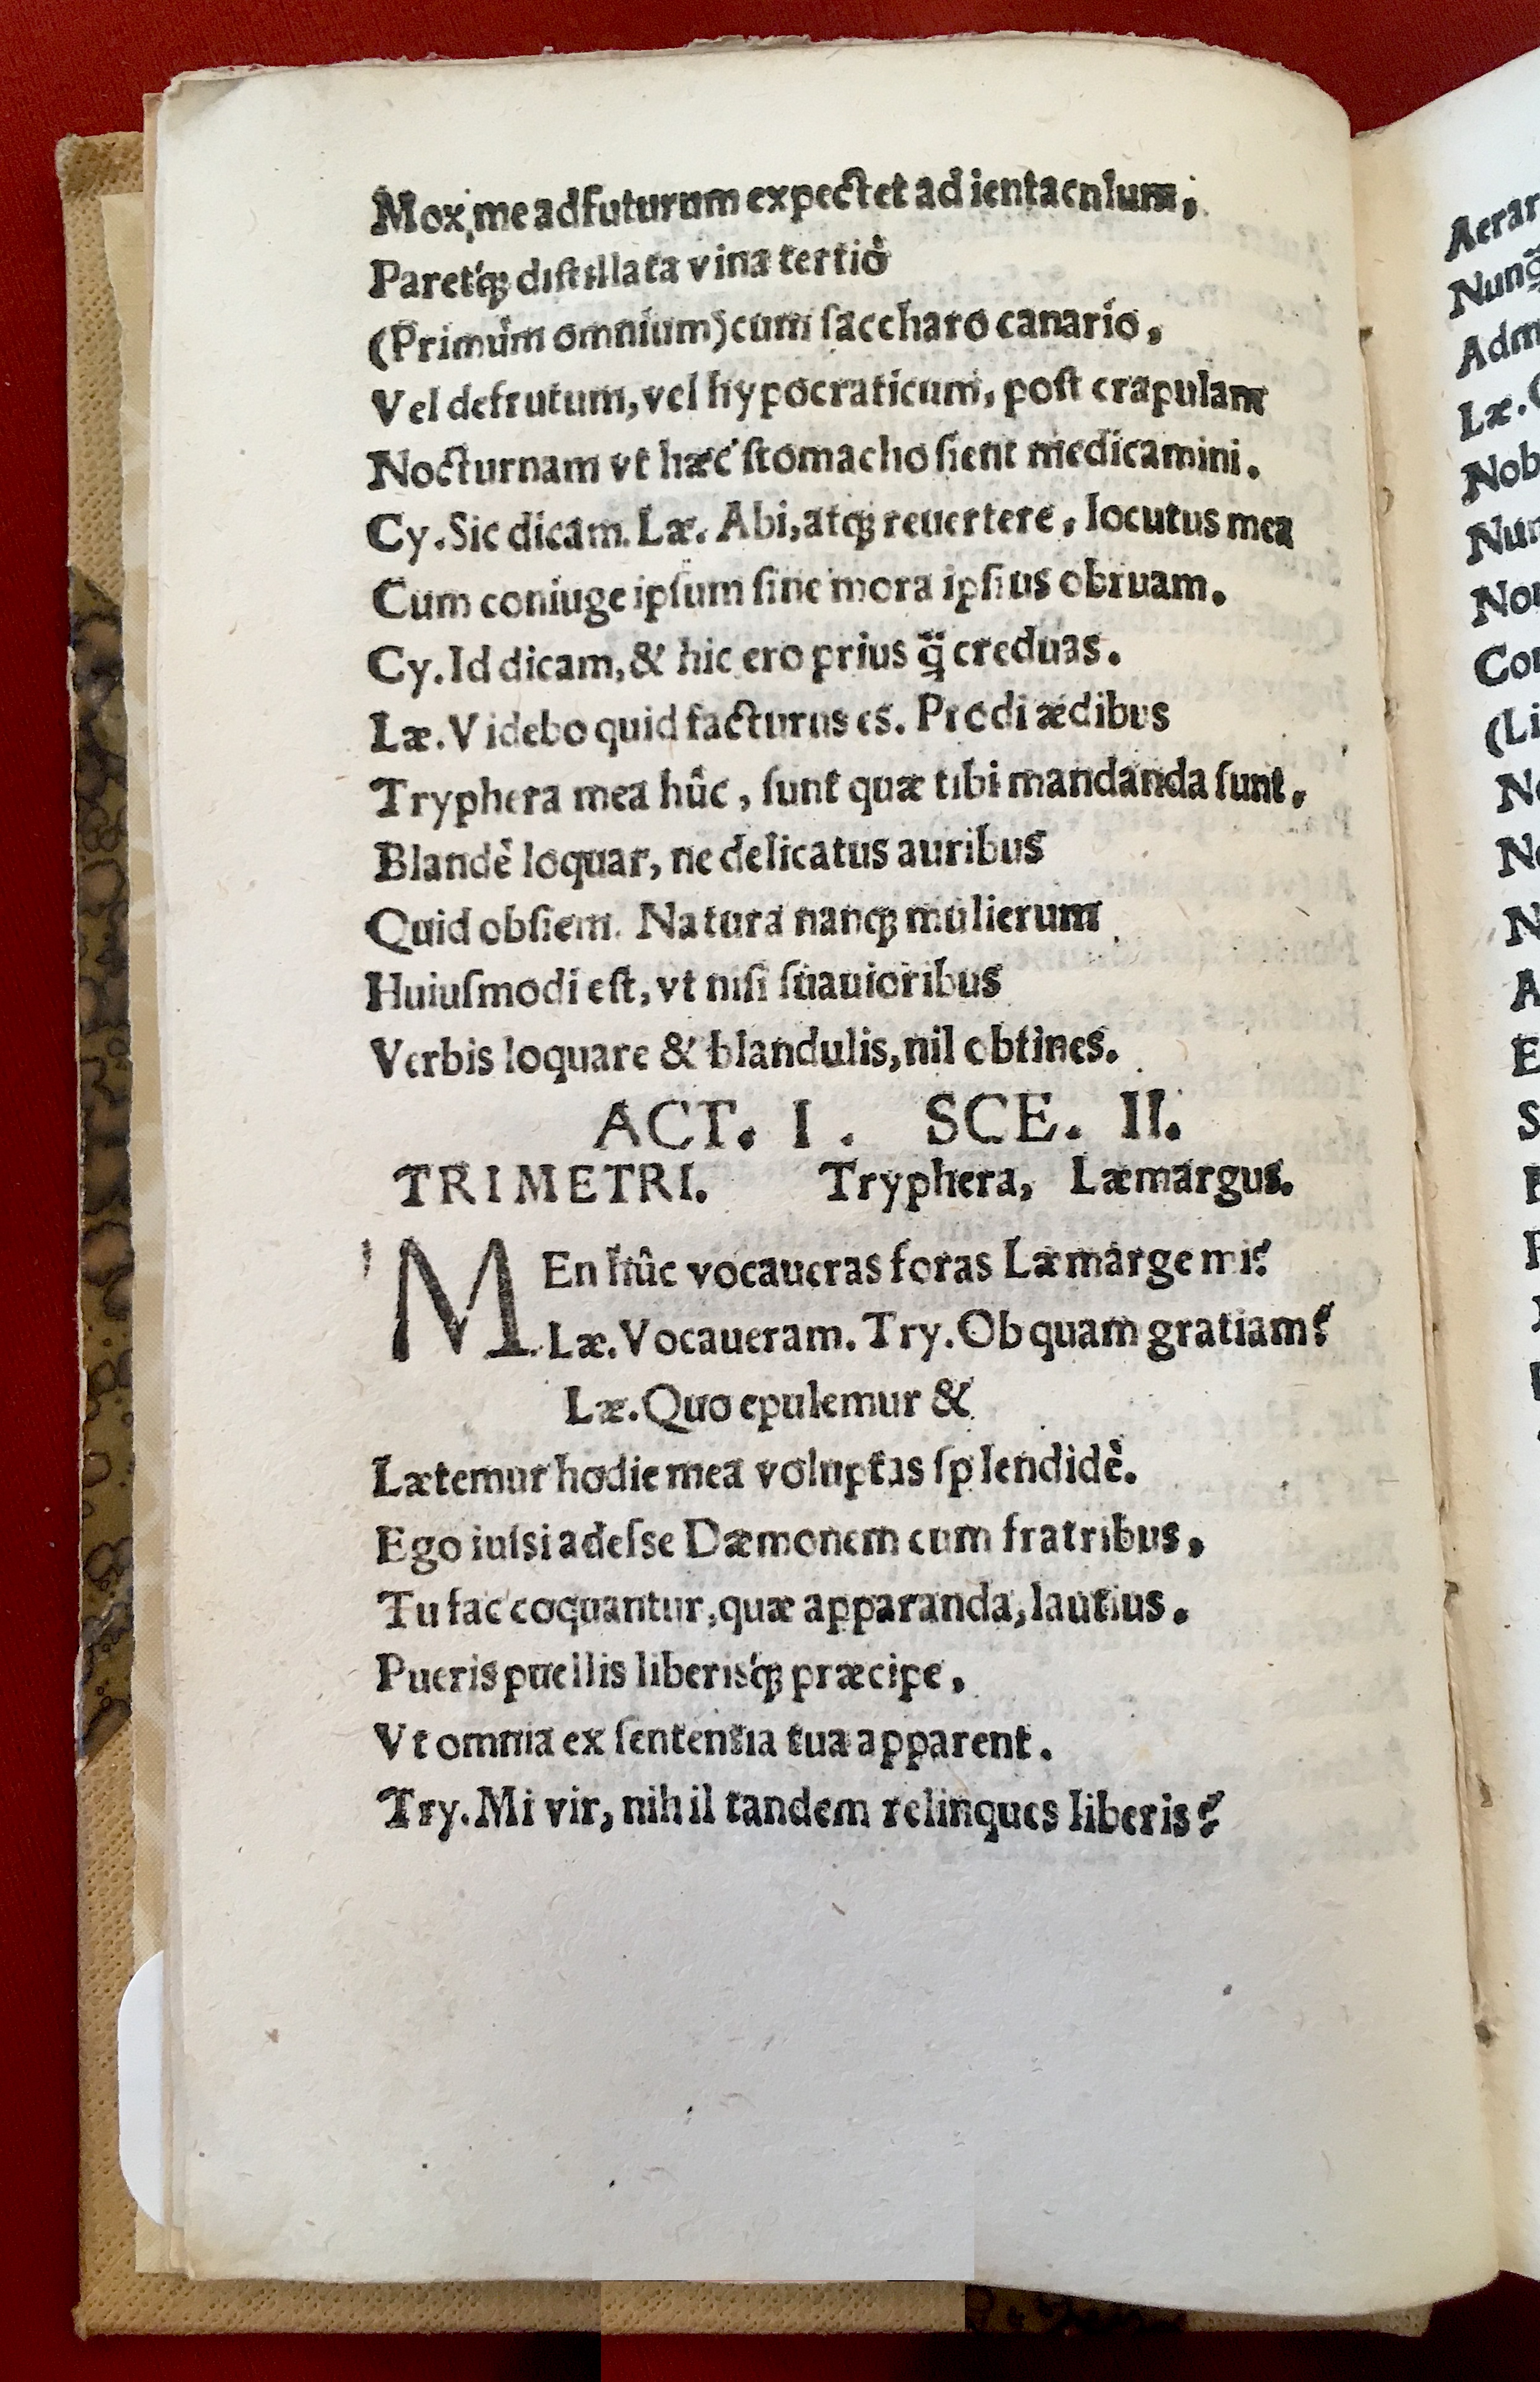 Mox me adfuturum expectet ad ientacnlum,
Paretq́ꝫ distillata vina tertiò
(Primùm omnium) cum ſaccharo canario,
Vel defrutum, vel hypocraticum, poſt crapulam
Nocturnam vt hæc ſtomacho ſient medicamini.
Cy. Sic dicam. Læ. Abi, atqꝫ reuertere, locutus mea
Cum coniuge ipſum ſine mora ipſius obruam.
Cy. Id dicam, & hic ero prius q̃ creduas.
Læ. Videbo quid facturus es. Prodi ædibus
Tryphera mea hûc, ſunt quæ tibi mandanda ſunt.
Blandè loquar, ne delicatus auribus
Quid obſiem. Natura nanqꝫ mulierum
Huiuſmodi eſt, vt niſi ſuauioribus
Verbis loquare & blandulis, nil obtines.
ACT. I. SCE. II.
TRIMETRI. Tryphera, Læmargus.
MEn hûc vocaueras foras Læmarge mi?
Læ. Vocaueram. Try. Ob quam gratiam?
Læ. Quo epulemur &
Lætemur hodie mea voluptas ſplendidè.
Ego iuſsi adeſse Dæmonem cum fratribus,
Tu fac coquantur, quæ apparanda, lautius.
Pueris puellis liberisq́ꝫ præcipe,
Vt omnia ex ſententia tua apparent.
Try. Mi vir, nihil tandem relinques liberis?
Aerar
Nunq̃
Adm
Læ.
Nob
Nun
Non
Con
(Li